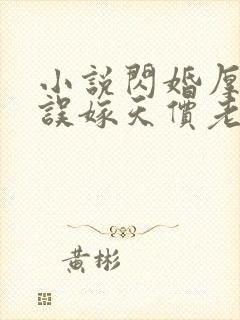 小說閃婚厚
誤嫁天價老
黃彬